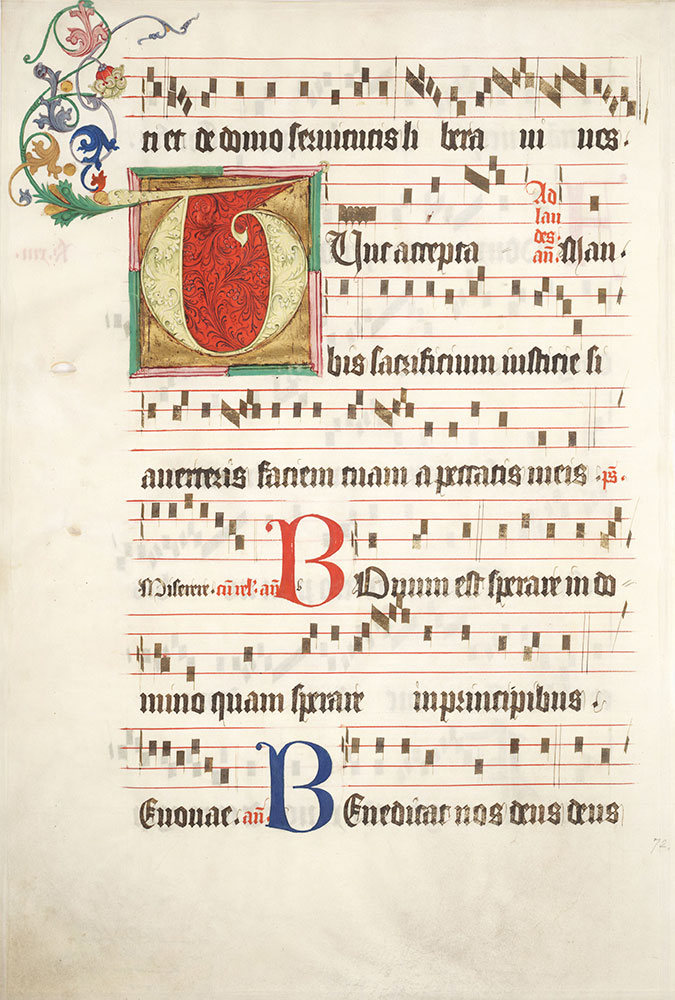 ti et de domo seruitutis li bera ui nes.
Tunc accepta Ad lau des an̄. Man.
bis sacrificium iusticie si
auerteris faciem tuam a peccatis meis. ps̄.
Miserere. cū rel'. an̄ B Onum est sperare in do
mino quam sperare in principibus.
Euouae. an̄. B Enedicat nos deus deus
72.